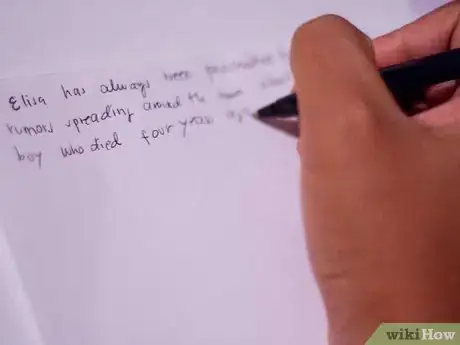 Elisa has always been
rumors spreading around the town
boy who died four years ago
wikiHow